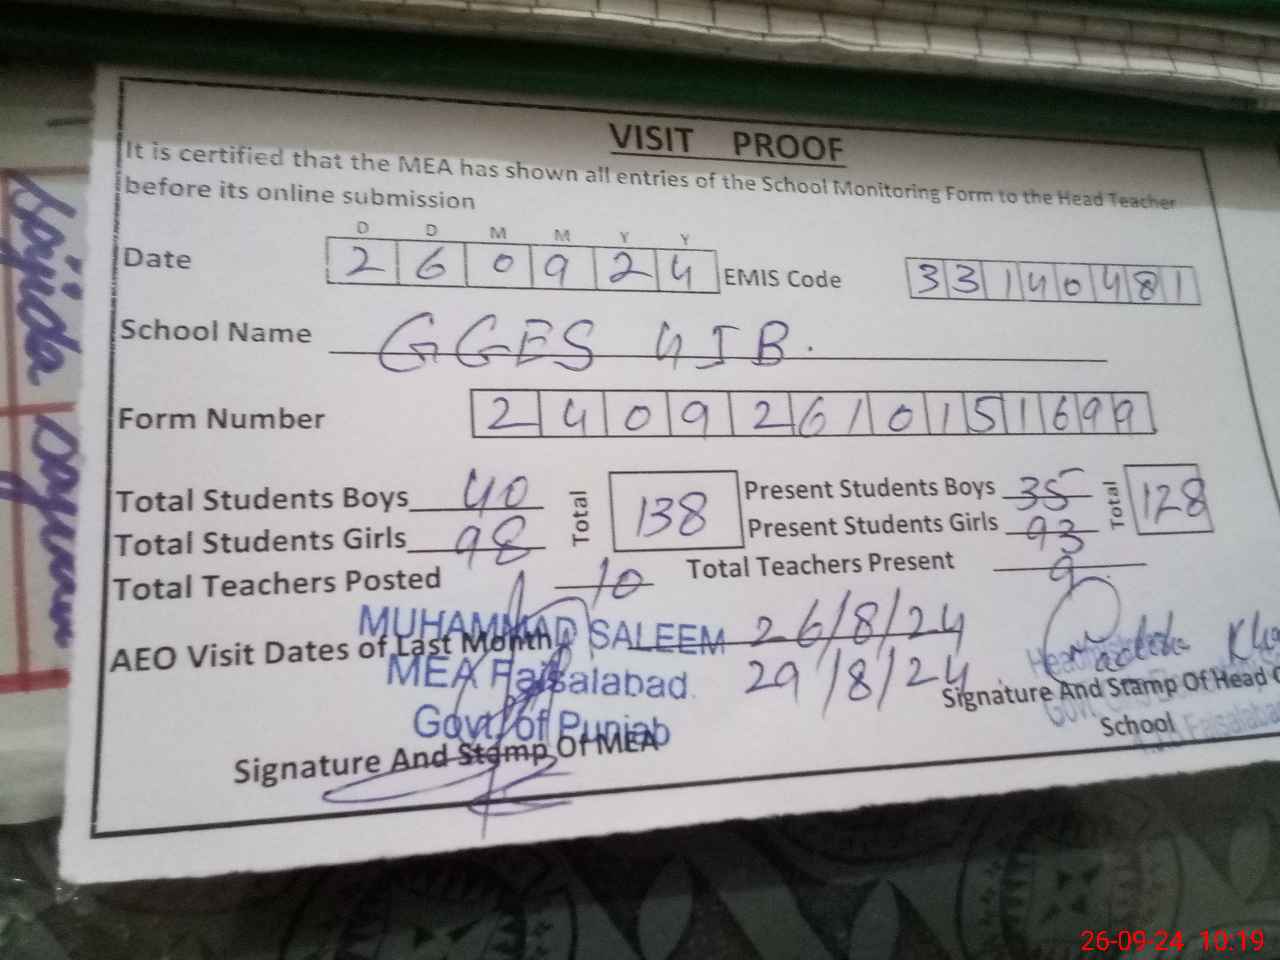 VISIT PROOF
It is certified that the MEA has shown all entries of the School Monitoring Form to the Head Teacher
before its online submission
D D M M Y Y
Date 2 6 0 9 2 4 EMIS Code 3 3 1 4 0 4 8 1
School Name GGES 4 JB.
Form Number 2 4 0 9 2 6 1 0 1 5 1 6 9 9
Total Students Boys 40 Total 138 Present Students Boys 35 Total 128
Total Students Girls 98 Present Students Girls 93
Total Teachers Posted 10 Total Teachers Present 9
AEO Visit Dates of Last Month 26/8/24
29/8/24
MUHAMMAD SALEEM
MEA Faisalabad
Govt of Punjab
Signature And Stamp Of MEA
Signature And Stamp Of Head
School
Faisalaba
26-09-24 10:19